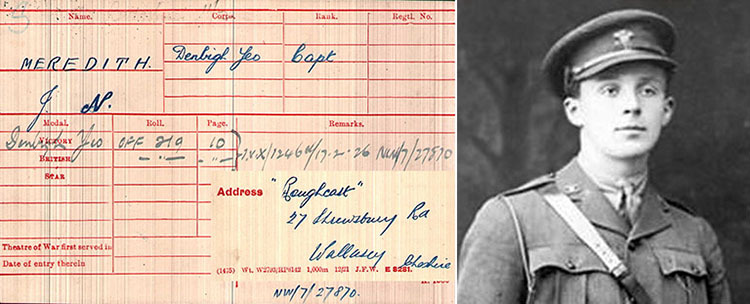 Name. Corps. Rank. Regtl. No.
MEREDITH. Denbigh Yeo Capt
J. N.
Medal. Roll. Page. Remarks.
VICTORY Denbigh Yeo OFF 219 10 I.V.X/1246 17-2-26 NW/7/27870
BRITISH - " - - " -
STAR
Address "Roughcast"
27 Shrewsbury Rd
Wallasey
Cheshire
Theatre of War first served in
Date of entry therein
(1435) Wt. W2703/RP6142 1,000m 12/21 J.F.W. E 8281.
NW/7/27870.